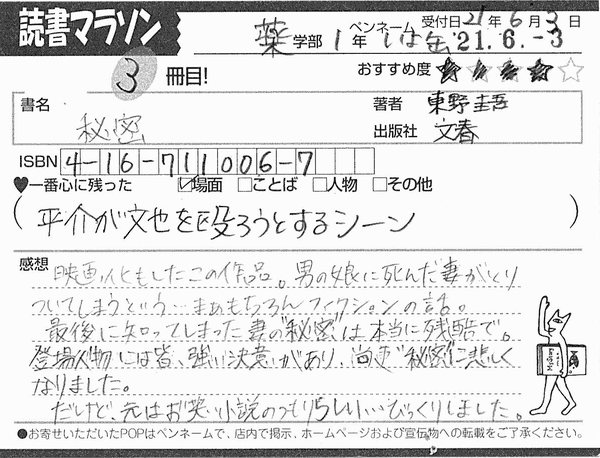 読書マラソン
薬 学部 1年 ペンネーム しば缶 受付日 21年6月3日
'21. 6. -3
3 冊目!
おすすめ度 ★★★★☆
書名 秘密
著者 東野圭吾
出版社 文春
ISBN 4-16-711006-7
♥一番心に残った ☑場面 □ことば □人物 □その他
(平介が文也を殴ろうとするシーン)
感想
映画化もしたこの作品。男の娘に死んだ妻がとり
ついてしまうという…まぁもちろんフィクションの話。
最後に知ってしまった妻の"秘密"は本当に残酷で。
登場人物には皆、強い決意があり、尚更"秘密"に悲しく
なりました。
だけど、元はお笑い小説のつもりらしい…びっくりしました。
●お寄せいただいたPOPはペンネームで、店内で掲示、ホームページおよび宣伝物への転載をご了承ください。